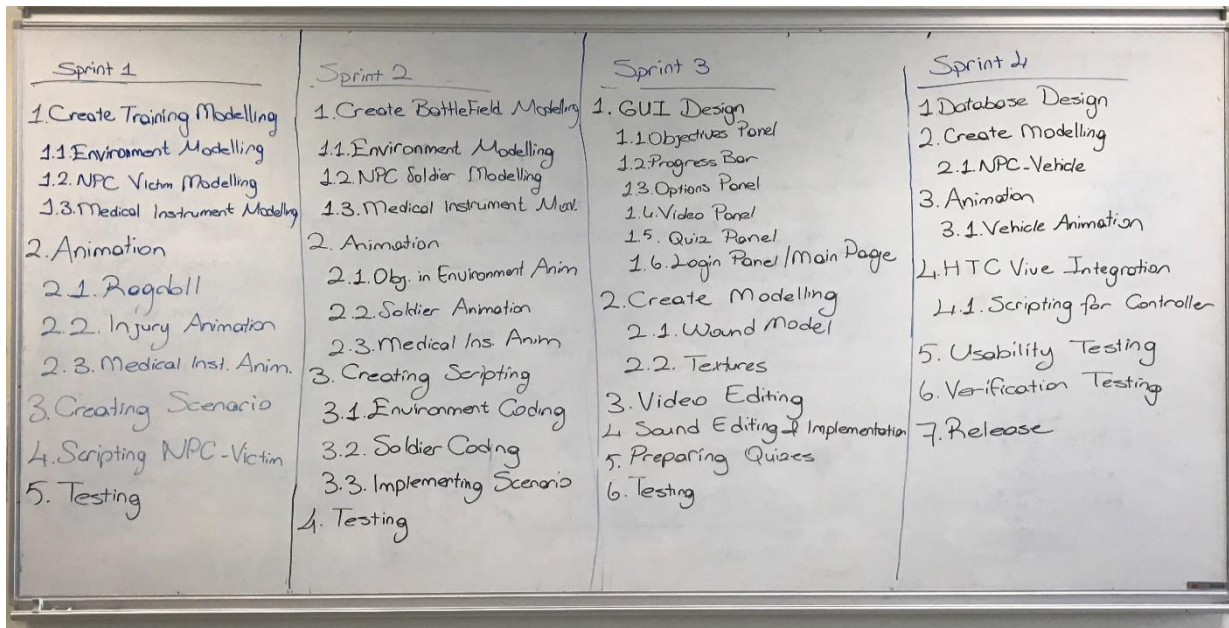 Sprint 1
1.Create Training Modelling
1.1.Environment Modelling
1.2. NPC Victm Modelling
1.3.Medical Instrument Modelling
2.Animation
2.1. Ragdoll
2.2. Injury Animation
2.3. Medical Inst. Anim.
3.Creating Scenario
4.Scripting NPC-Victim
5. Testing
Sprint 2
1.Create BattleField Modelling
1.1.Environment Modelling
1.2.NPC Soldier Modelling
1.3.Medical Instrument
2. Animation
2.1.Obj. in Environment Anim
2.2.Soldier Animation
2.3.Medical Ins. Anim
3. Creating Scripting
3.1.Environment Coding
3.2. Soldier Coding
3.3. Implementing Scenario
4. Testing
Sprint 3
1. GUI Design
1.1.Objectives Panel
1.2.Progress Bar
1.3.Options Panel
1.4.Video Panel
1.5. Quiz Panel
1.6.Login Panel/Main Page
2.Create Modelling
2.1.Wound Model
2.2. Textures
3.Video Editing
4 Sound Editing & Implementation
5. Preparing Quizes
6.Testing
Sprint 4
1.Database Design
2.Create Modelling
2.1.NPC-Vehicle
3. Animation
3.1.Vehicle Animation
4.HTC Vive Integration
4.1. Scripting for Controller
5. Usability Testing
6. Verification Testing
7.Release